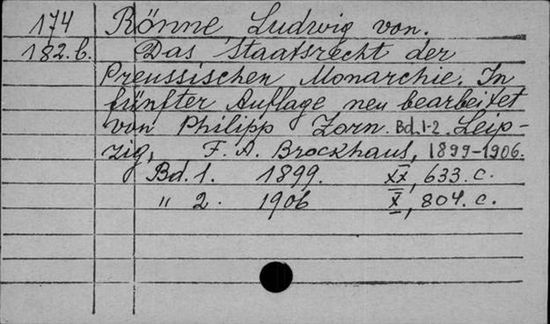 174 Rönne, Ludwig von.
182.b. Das Staatsrecht der
Preussischen Monarchie. In
fünfter Auflage neu bearbeitet
von Philipp Zorn. Bd. 1-2. Leip-
zig, F. A. Brockhaus, 1899-1906.
Bd. 1. 1899. XX, 633. c.
" 2. 1906 X, 804. c.